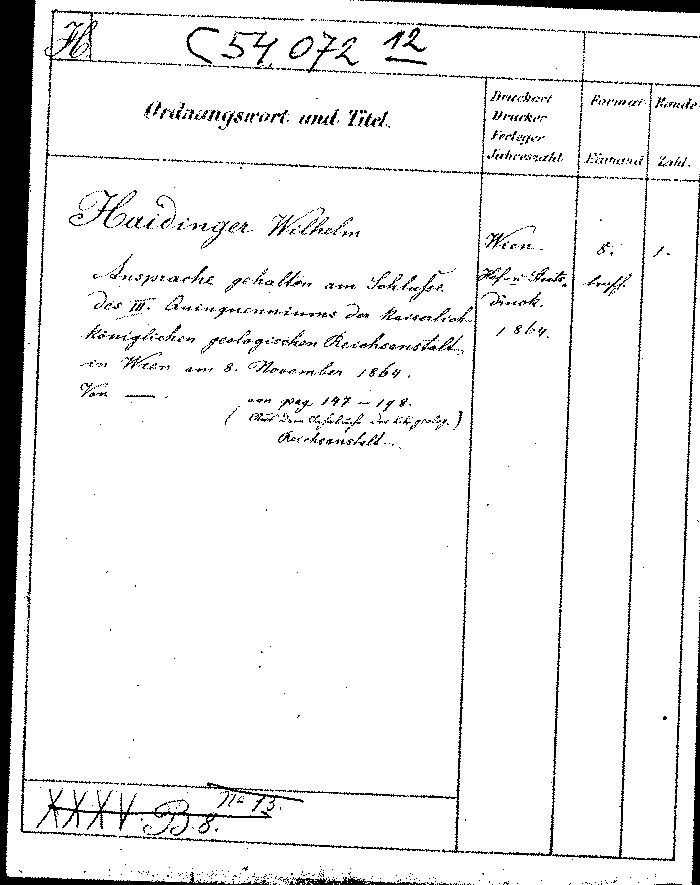 H
C 54.072 12
Ordnungswort und Titel.
Druckort
Drucker
Verleger
Jahreszahl
Format
Einband
Bände-
Zahl.
Haidinger Wilhelm
Ansprache gehalten am Schlusse
des III. Quinquenniums der kaiserlich-
königlichen geologischen Reichsanstalt
in Wien am 8. November 1864.
Von —
von pag 147 – 198.
(Aus dem Jahrbuch der k.k. geolog.)
Reichsanstalt.
Wien.
Hof- u Staats-
druck.
1864.
8.
1.
XXXV. B. 8.
No 13.